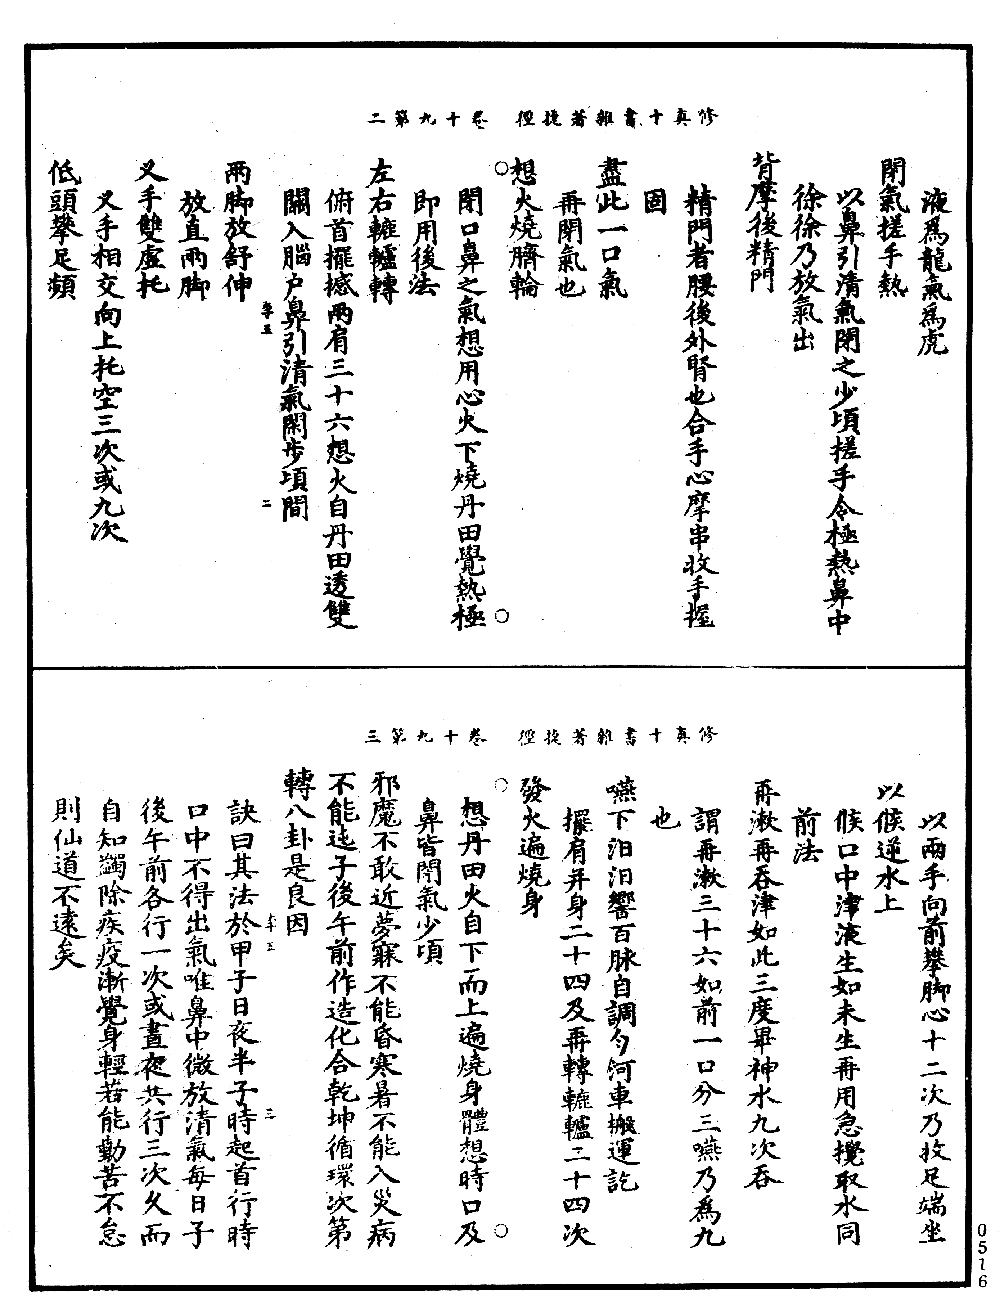 修真十書雜著捷徑　卷十九第二
液為龍氣為虎
閉氣搓手熱
以鼻引清氣閉之少頃搓手令極熱鼻中
徐徐乃放氣出
背摩後精門
精門者腰後外腎也合手心摩畢收手握
固
盡此一口氣
再閉氣也
想火燒臍輪
閉口鼻之氣想用心火下燒丹田覺熱極
即用後法
左右轆轤轉
俯首擺撼兩肩三十六想火自丹田透雙
關入腦户鼻引清氣閑步頃間
兩脚放舒伸
放直兩脚
叉手雙虛托
叉手相交向上托空三次或九次
低頭攀足頻
修真十書雜著捷徑　卷十九第三
以兩手向前攀脚心十二次乃收足端坐
以候逆水上
候口中津液生如未生再用急攪取水同
前法
再漱再吞津如此三度畢神水九次吞
謂再漱三十六如前一口分三嚥乃為九
也
嚥下汩汩響百脉自調勻河車搬運訖
擺肩并身二十四及再轉轆轤二十四次
發火遍燒身
想丹田火自下而上遍燒身體想時口及
鼻皆閉氣少頃
邪魔不敢近夢寐不能昏寒暑不能入災病
不能迍子後午前作造化合乾坤循環次第
轉八卦是良因
訣曰其法於甲子日夜半子時起首行時
口中不得出氣唯鼻中微放清氣每日子
後午前各行一次或晝夜共行三次久而
自知蠲除疾疫漸覺身輕若能勤苦不怠
則仙道不遠矣
0516